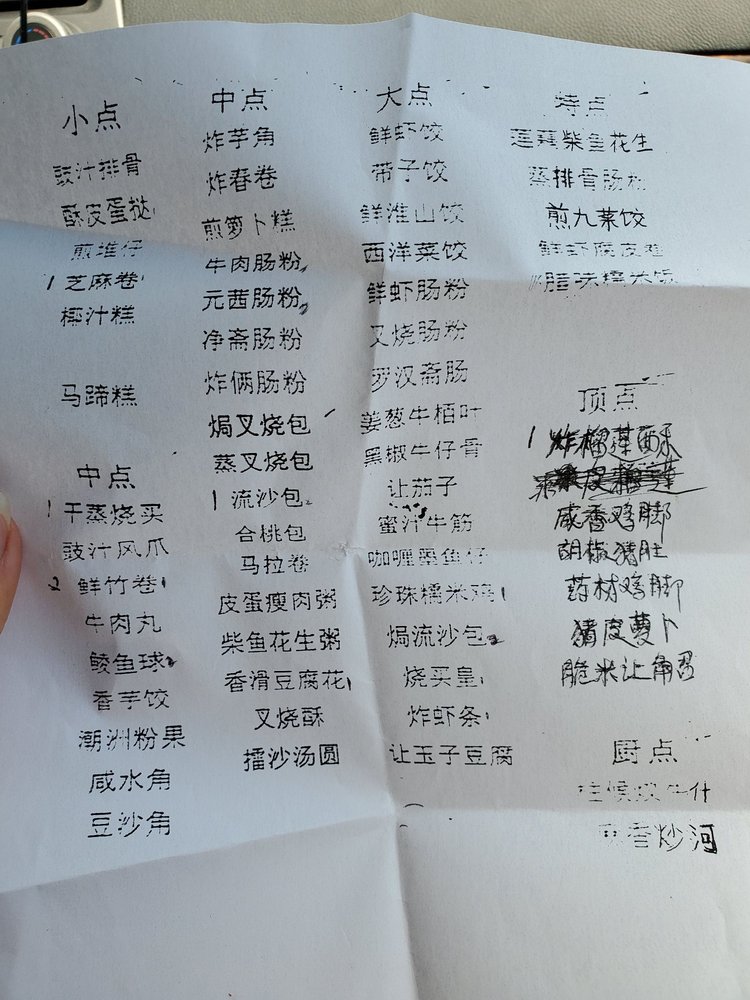 小点
豉汁排骨
酥皮蛋挞
煎堆仔
1 芝麻卷1
椰汁糕
马蹄糕
中点
1 干蒸烧买
豉汁凤爪
2 鲜竹卷1
牛肉丸
鲮鱼球2
香芋饺
潮洲粉果
咸水角
豆沙角
中点
炸芋角
炸春卷
煎萝卜糕
牛肉肠粉
元茜肠粉2
净斋肠粉
炸俩肠粉
焗叉烧包
蒸叉烧包
1 流沙包
合桃包
马拉卷
皮蛋瘦肉粥
柴鱼花生粥
香滑豆腐花1
叉烧酥
擂沙汤圆
大点
鲜虾饺
带子饺
鲜淮山饺
西洋菜饺
鲜虾肠粉
叉烧肠粉
罗汉斋肠
姜葱牛栢叶
黑椒牛仔骨
让茄子
蜜汁牛筋
咖喱墨鱼仔
珍珠糯米鸡1
焗流沙包2
烧买皇1
炸虾条1
让玉子豆腐
特点
莲藕柴鱼花生
蒸排骨肠粉
煎九菜饺
鲜虾腐皮卷
顶点
1 炸榴莲酥
咸香鸡脚
胡椒猪肚
药材鸡脚
猪皮萝卜
脆米让角
厨点
香炒河